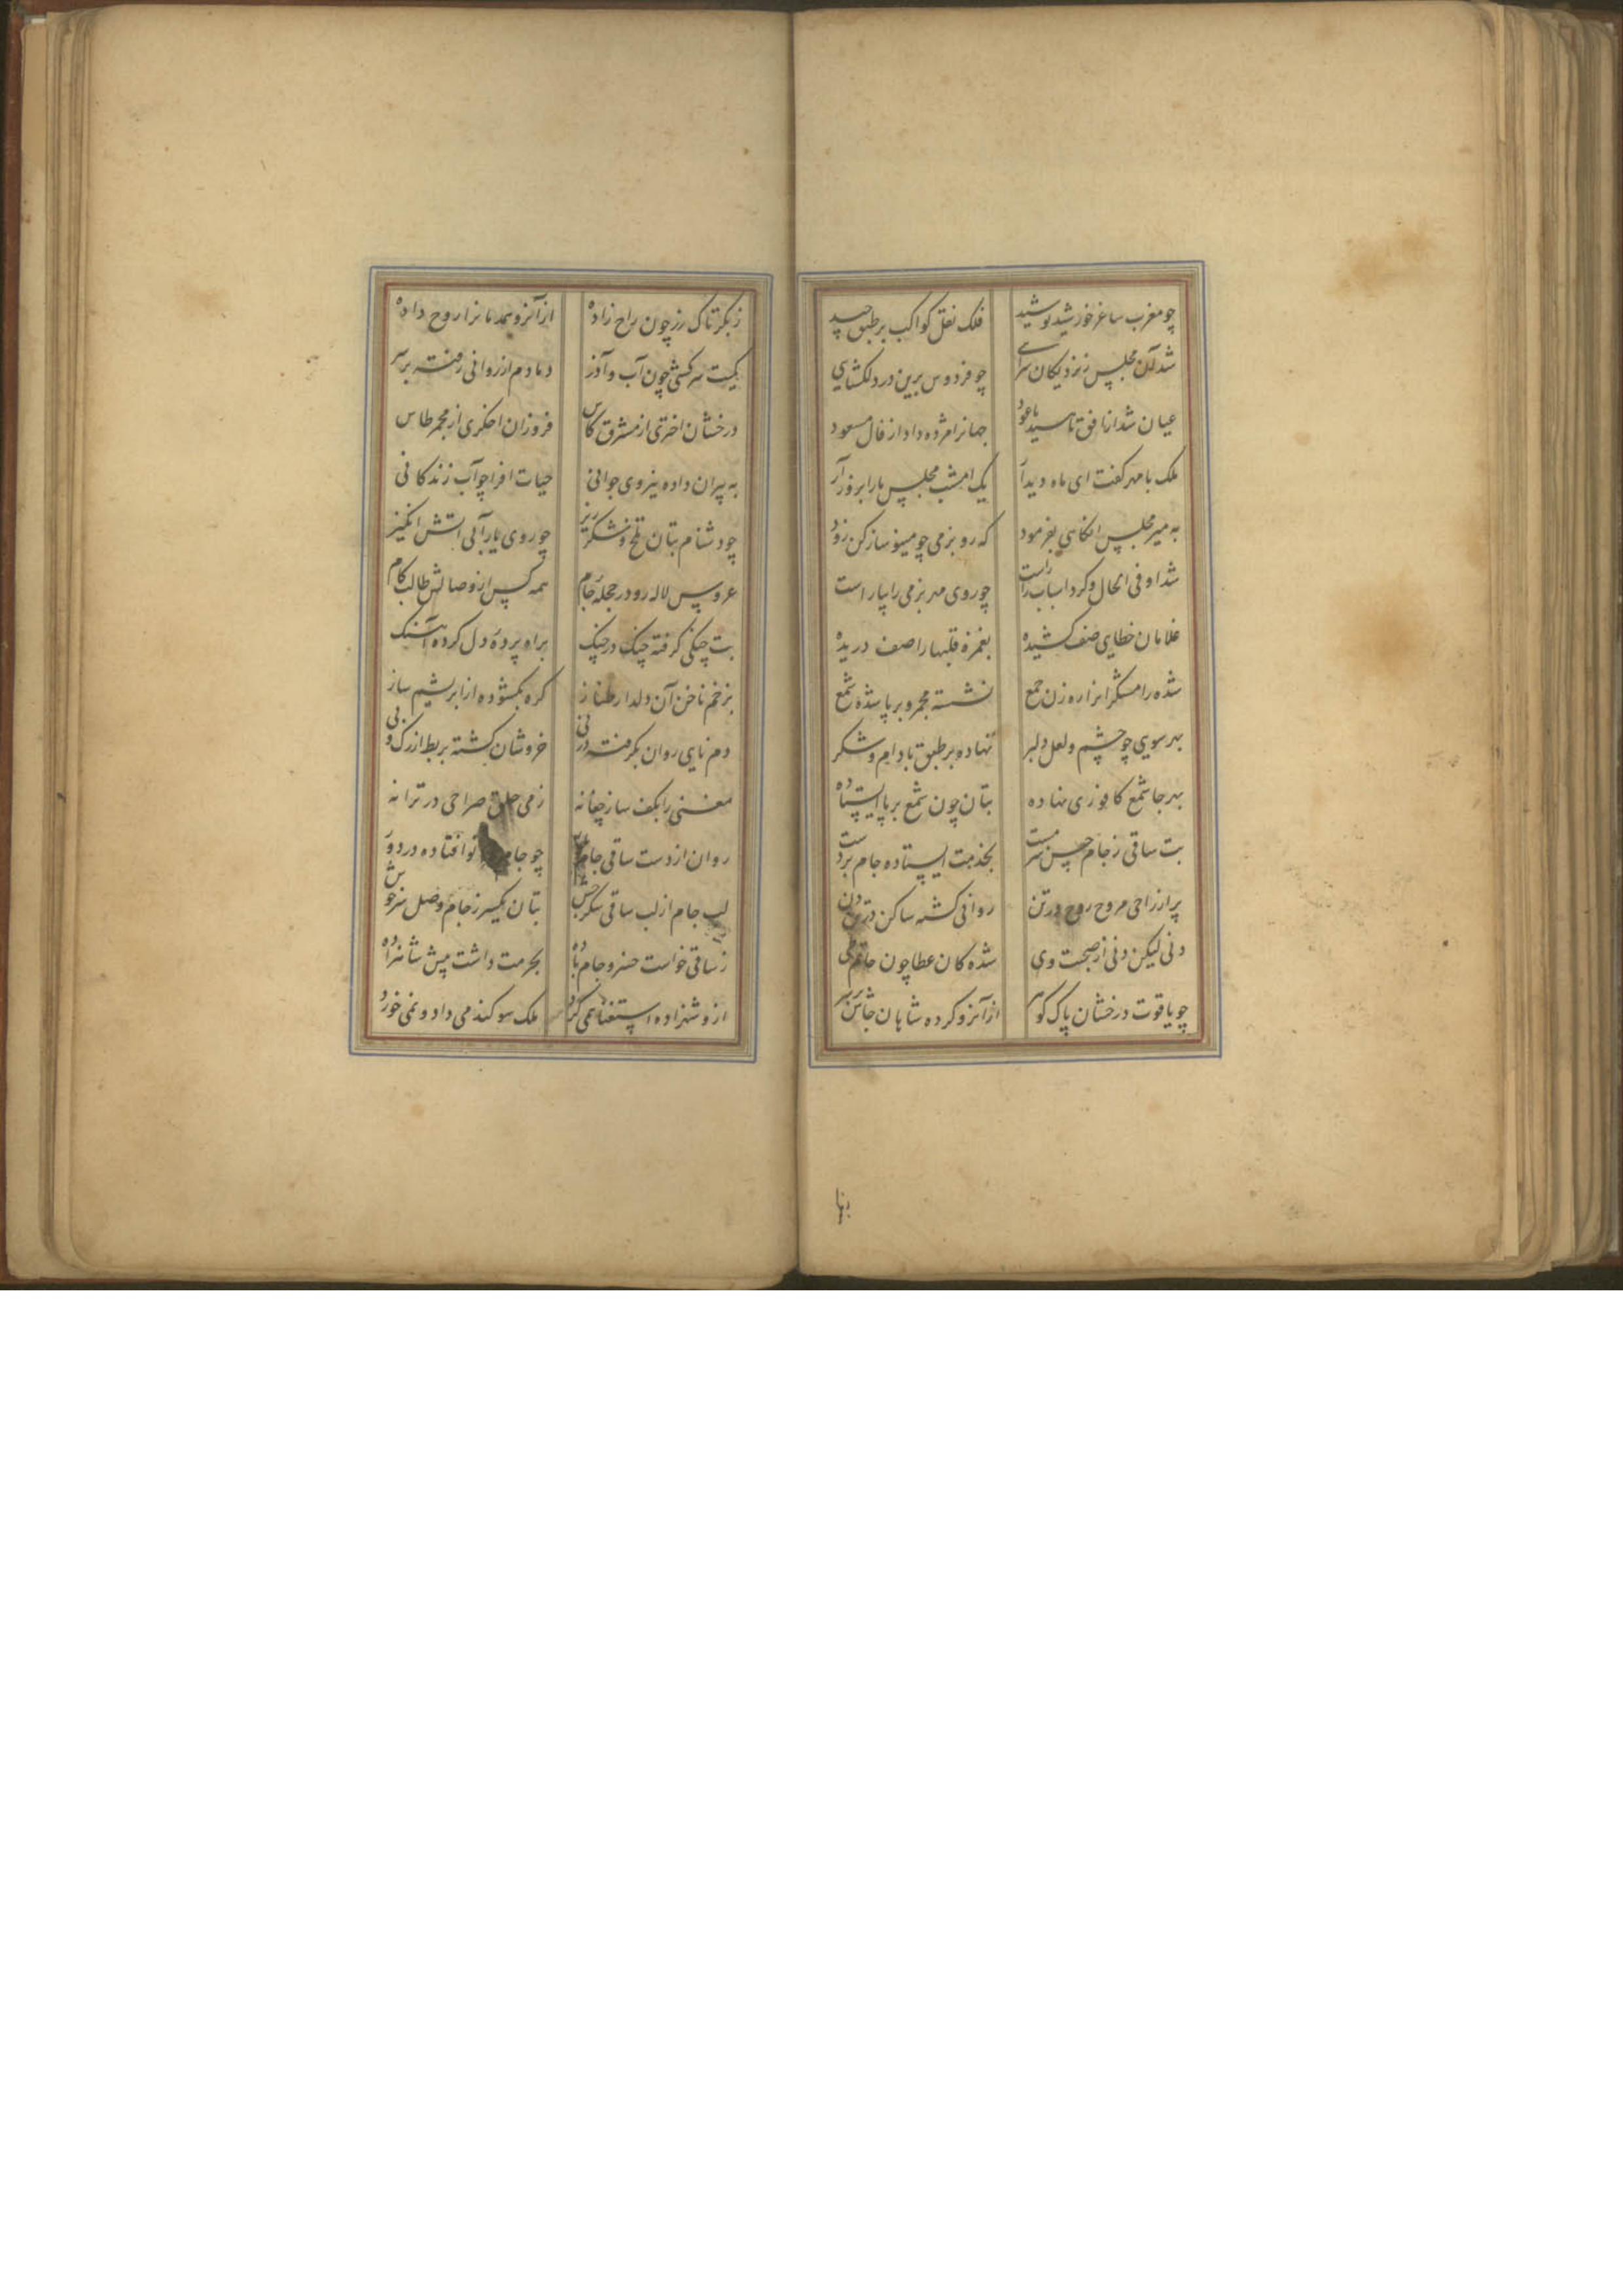 چو مغرب ساغر خورشید نوشید فلک نقل کواکب بر طبق چید
شد آن مجلس ز نزدیکان سرای چو فردوس برین در دلکشایی
عیان شد از افق ناهید با عود جهانرا مژده داد از فال مسعود
ملک با مهر گفت ای ماه دیدار یک امشب مجلس ما را برافروز
به میر مجلس آنگاهی بفرمود که رو بزمی چو مینو ساز کن زود
شد او فی الحال و کرد اسباب را راست چو روی مهر بزمی را بیاراست
غلامان خطایی صف کشیده بغمزه قلبها را صف دریده
شده رامشگران راه زن جمع نشسته مجمر و برپا شده شمع
بهر سوی چو چشم و لعل دلبر نهاده بر طبق بادام و شکر
بهر جا شمع کافوری نهاده بتان چون شمع برپا ایستاده
بت ساقی ز جام حسن سرمست بخدمت ایستاده جام بر دست
پر از راحی مروح روح در تن روانی گشته ساکن در
دنی لیکن دنی از صحبت وی شده کان عطا چون حاتم طی
چو یاقوت درخشان پاک گوهر از آنرو کرده شاهان جاش بر سر
بها
ز بکر تاک رز چون راح زاده از آنرو همدمانرا روح داده
کمیت سرکشی چون آب و آذر دمادم از روانی رفته بر سر
درخشان اختری از مشرق کاس فروزان اخگری از مجمر طاس
به پیران داده نیروی جوانی حیات افزا چو آب زندگانی
چو دشنام بتان تلخ و شکرریز چو روی یار آبی آتش انگیز
عروس لاله رو در حجله جام همه کس از وصالش طالب کام
بت چنگی گرفته چنگ در چنگ براه پرده دل کرده آهنگ
بزخم ناخن آن دلدار طناز گره بگشوده از ابریشم ساز
دم نایی روان بگرفته در نی خروشان گشته بربط از رگ و پی
مغنی را بکف ساز چغانه ز می حلق صراحی در ترانه
روان از دست ساقی جام چو جام افتاده در دور
لب جام از لب ساقی شکر بخش بتان یکسر ز جام وصل سرخوش
ز ساقی خواست خسرو جام باده بحرمت داشت پیش شاهزاده
ازو شهزاده استغنا همی کرد ملک سوگند می داد و نمی خورد